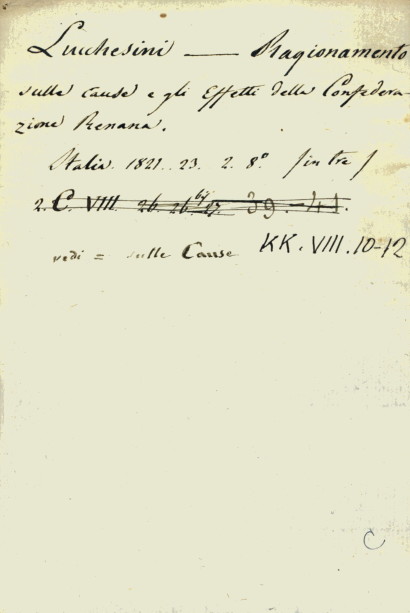 Lucchesini — Ragionamento
sulle cause e gli Effetti della Confedera-
zione Renana.
Italia. 1821. 23. 2. 8º (in tre)
2. C. VIII. 26. 26 by 27. 39. - 41.
vedi = sulle Cause KK. VIII. 10-12
C